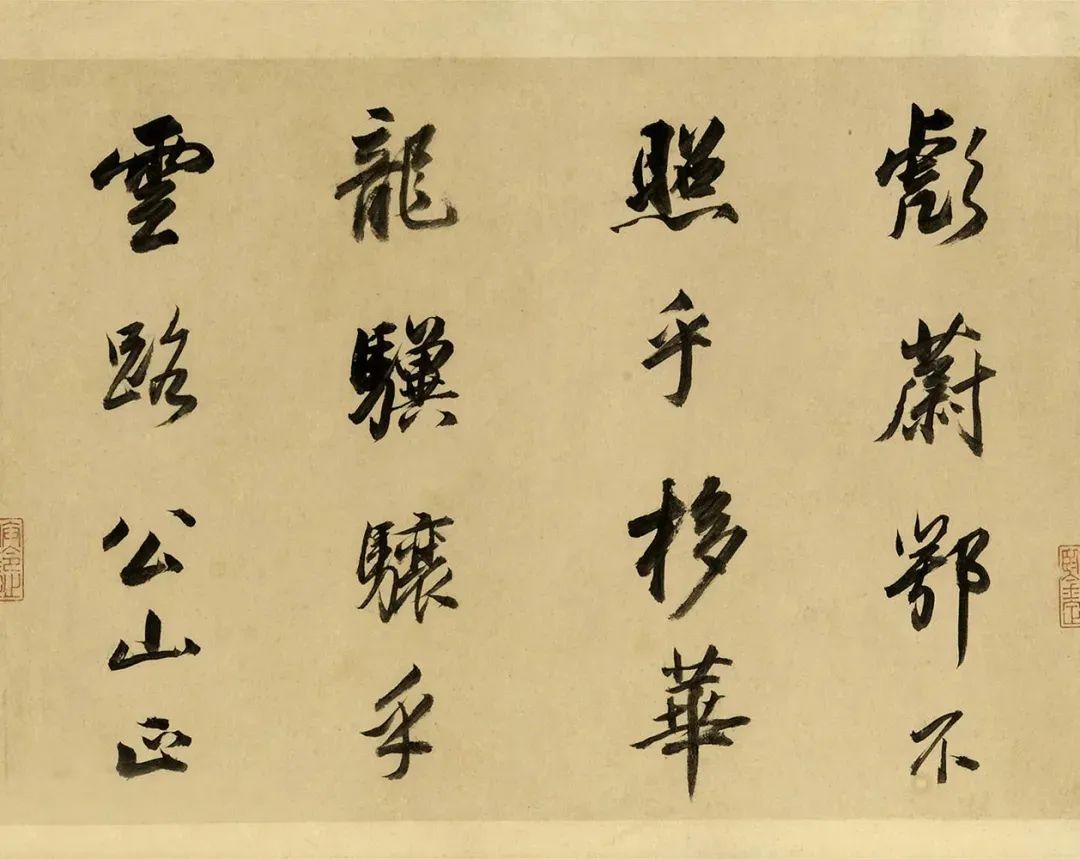 彪蔚鄂不
照乎栘華
龍驥驤乎
雲路公山正